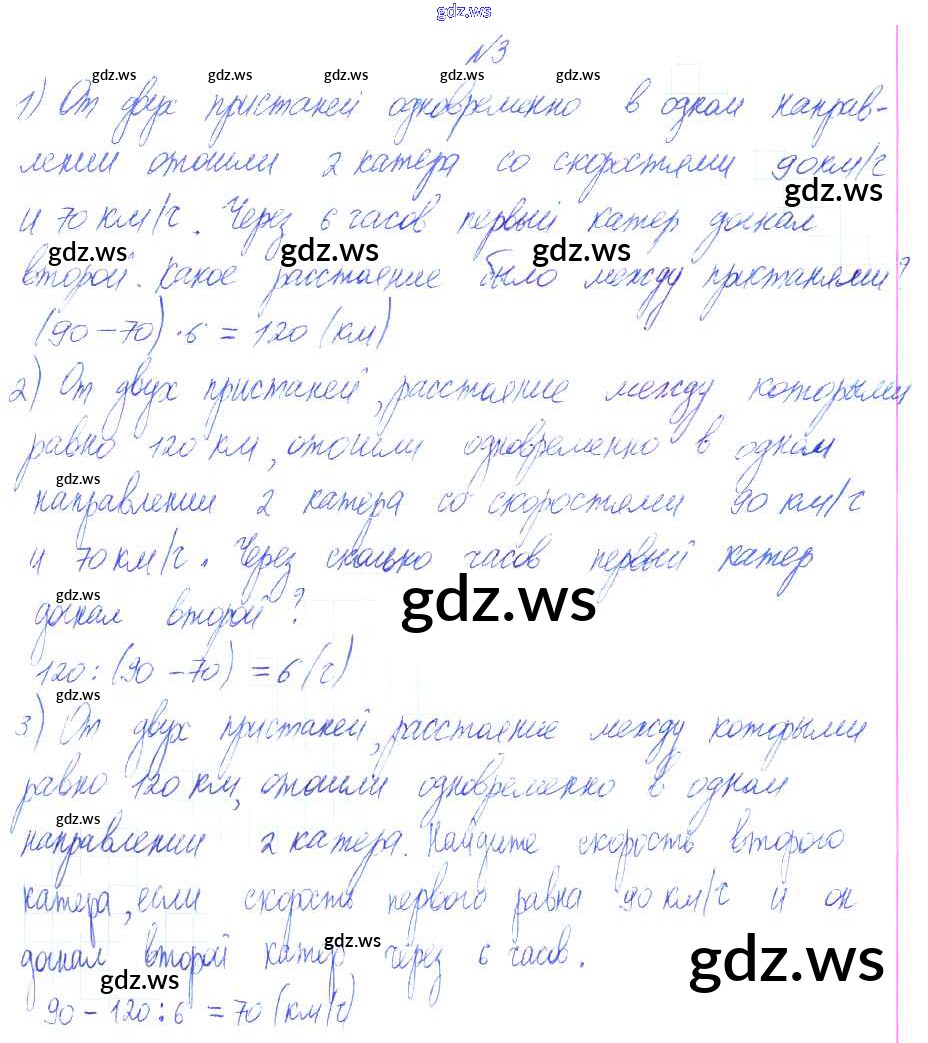 gdz.ws
№3
gdz.ws gdz.ws gdz.ws gdz.ws gdz.ws
1) От двух пристаней одновременно в одном направ-
лении отошли 2 катера со скоростями 90км/ч
gdz.ws
и 70 км/ч. Через 6 часов первый катер догнал
gdz.ws gdz.ws gdz.ws
второй. Какое расстояние было между пристанями?
(90-70)·6 = 120 (км)
2) От двух пристаней, расстояние между которыми
равно 120 км, отошли одновременно в одном
gdz.ws
направлении 2 катера со скоростями 90 км/ч
и 70 км/ч. Через сколько часов первый катер
gdz.ws gdz.ws
догнал второй?
120:(90-70) = 6 (ч)
gdz.ws
3) От двух пристаней, расстояние между которыми
равно 120 км, отошли одновременно в одном
gdz.ws
направлении 2 катера. Найдите скорость второго
катера, если скорость первого равна 90 км/ч и он
gdz.ws gdz.ws
догнал второй катер через 6 часов.
gdz.ws
90-120:6 = 70 (км/ч)